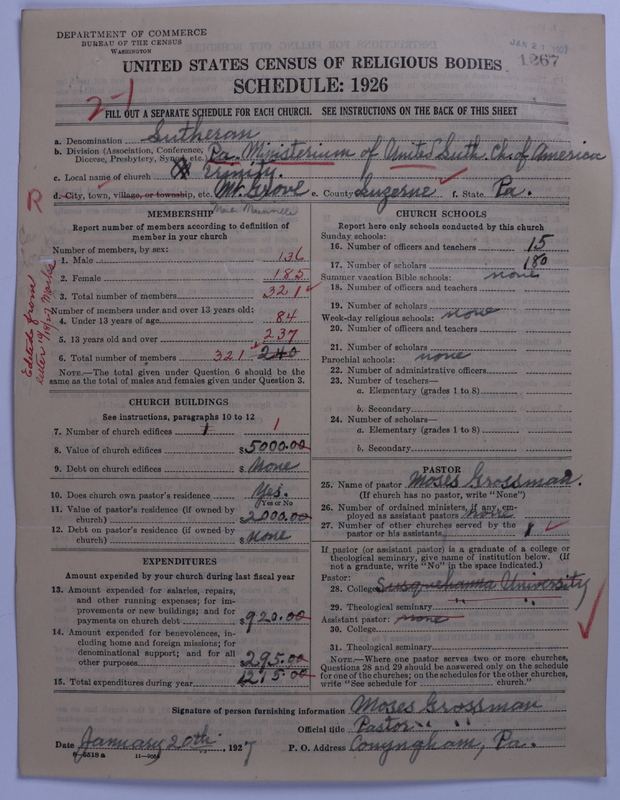 DEPARTMENT OF COMMERCE
BUREAU OF THE CENSUS
WASHINGTON
JAN 21 1927
1267
UNITED STATES CENSUS OF RELIGIOUS BODIES
SCHEDULE: 1926
2-1
FILL OUT A SEPARATE SCHEDULE FOR EACH CHURCH. SEE INSTRUCTIONS ON THE BACK OF THIS SHEET
a. Denomination Lutheran
b. Division (Association, Conference, Diocese, Presbytery, Synod, etc.) Pa. Ministerium of United Luth. Ch. of America
c. Local name of church Trinity.
d. City, town, village, or township, etc. Mt. Grove e. County Luzerne f. State Pa.
R
MEMBERSHIP
Report number of members according to definition of
member in your church
Number of members, by sex:
1. Male 136
2. Female 185
3. Total number of members 321
Number of members under and over 13 years old:
4. Under 13 years of age 84
5. 13 years old and over 237
6. Total number of members 321 240
NOTE.—The total given under Question 6 should be
the same as the total of males and females given under Question 3.
Edited from
letter
CHURCH BUILDINGS
See instructions, paragraphs 10 to 12
7. Number of church edifices 1 1
8. Value of church edifices $5000.00
9. Debt on church edifices $ None
10. Does church own pastor's residence Yes.
(Yes or No
11. Value of pastor's residence (if owned by
church) $2000.00
12. Debt on pastor's residence (if owned by
church) $ None
EXPENDITURES
Amount expended by your church during last fiscal year
13. Amount expended for salaries, repairs,
and other running expenses; for im-
provements or new buildings; and for
payments on church debt $920.00
14. Amount expended for benevolences, in-
cluding home and foreign missions; for
denominational support; and for all
other purposes $295.00
15. Total expenditures during year 1215.00
CHURCH SCHOOLS
Report here only schools conducted by this church
Sunday schools:
16. Number of officers and teachers 15
17. Number of scholars 180
Summer vacation Bible schools: none
18. Number of officers and teachers
19. Number of scholars
Week-day religious schools: none
20. Number of officers and teachers
21. Number of scholars
Parochial schools: none
22. Number of administrative officers
23. Number of teachers—
a. Elementary (grades 1 to 8)
b. Secondary
24. Number of scholars—
a. Elementary (grades 1 to 8)
b. Secondary
PASTOR
25. Name of pastor Moses Grossman.
(If church has no pastor, write "None")
26. Number of ordained ministers, if any, em-
ployed as assistant pastors None
27. Number of other churches served by the
pastor or his assistants 1
If pastor (or assistant pastor) is a graduate of a college or
theological seminary, give name of institution below. (If
not a graduate, write "No" in the space indicated.)
Pastor:
28. College Susquehanna University
29. Theological seminary " "
Assistant pastor: none
30. College
31. Theological seminary
NOTE.—Where one pastor serves two or more churches,
Questions 28 and 29 should be answered only on the schedule
for one of the churches; on the schedules for the other churches,
write "See schedule for church."
Signature of person furnishing information Moses Grossman
Official title Pastor " "
Date January 20th, 1927 P. O. Address Conyngham, Pa.
8-5518a 11-9064